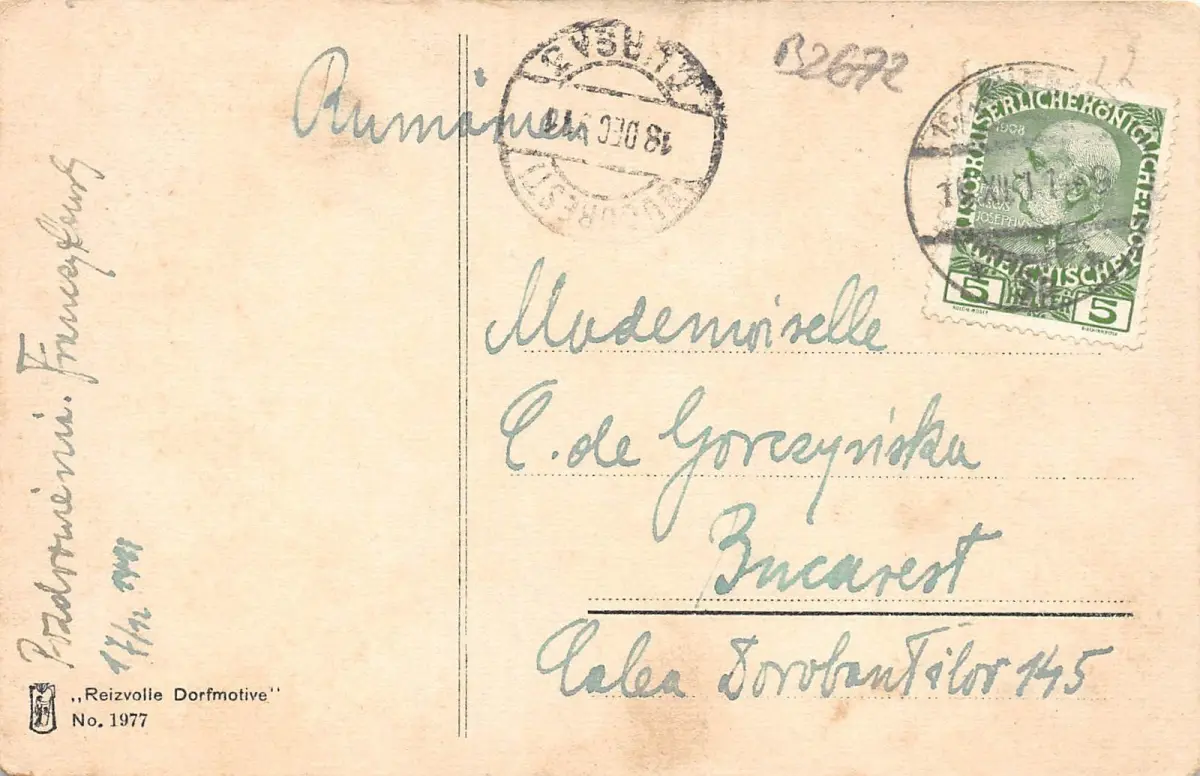 Rumänien
BUCURESTI
18 DEC 911
B2672
KAISERLICHE KÖNIGLICHE
ÖSTERREICHISCHE POST
1908
JOSEPHUS
5 HELLER 5
Mademoiselle
C. de Gorczyńska
Bucarest
Calea Dorobantilor 145
Pozdrowienia.
17/12 1911
„Reizvolle Dorfmotive“
No. 1977